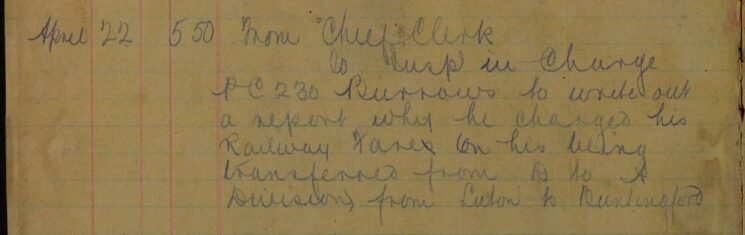 April 22 5.50 From Chief Clerk
to Insp in Charge
P C 230 Burrows to write out
a report why he charged his
Railway Fares on his being
transferred from B to A
Division, from Luton to Buntingford